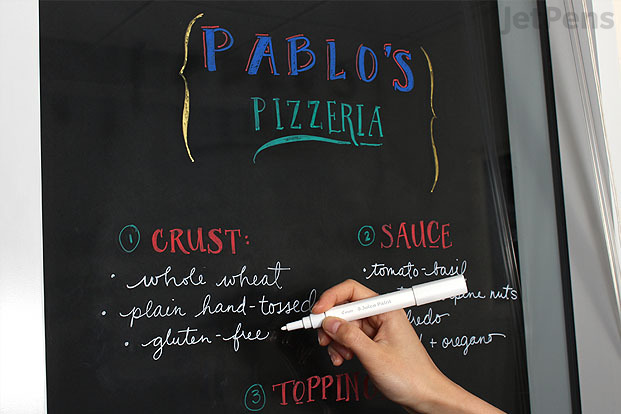 JetPens
PABLO'S
PIZZERIA
1 CRUST:
• whole wheat
• plain hand-tossed
• gluten-free
2 SAUCE
• tomato-basil
nuts
+ oregano
3